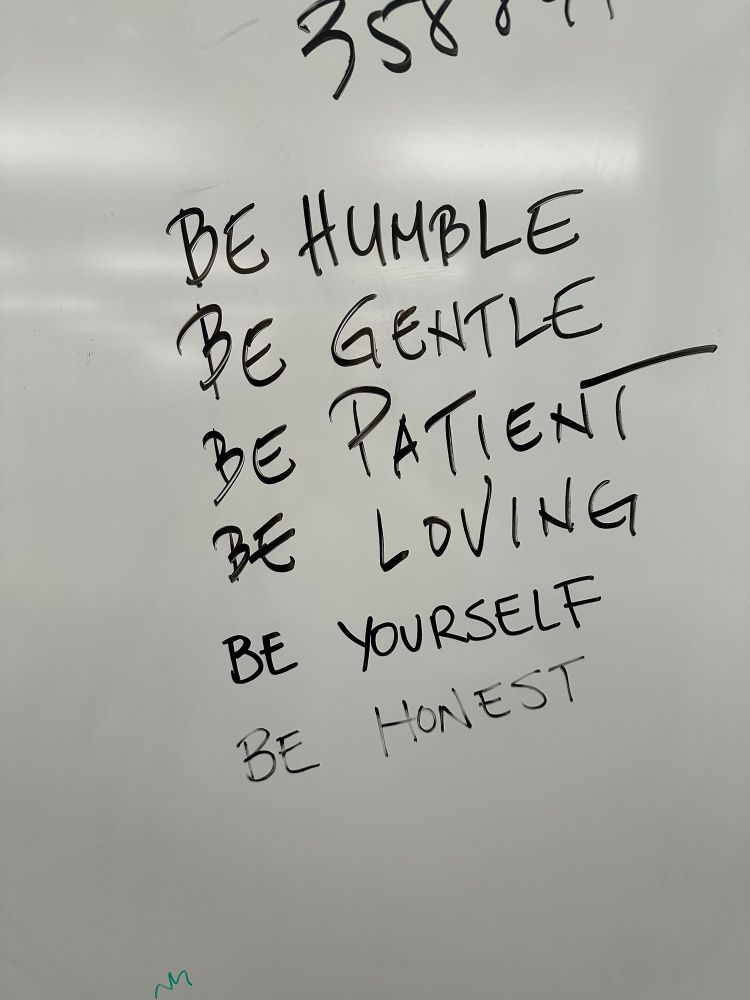 BE HUMBLE
BE GENTLE
BE PATIENT
BE LOVING
BE YOURSELF
BE HONEST